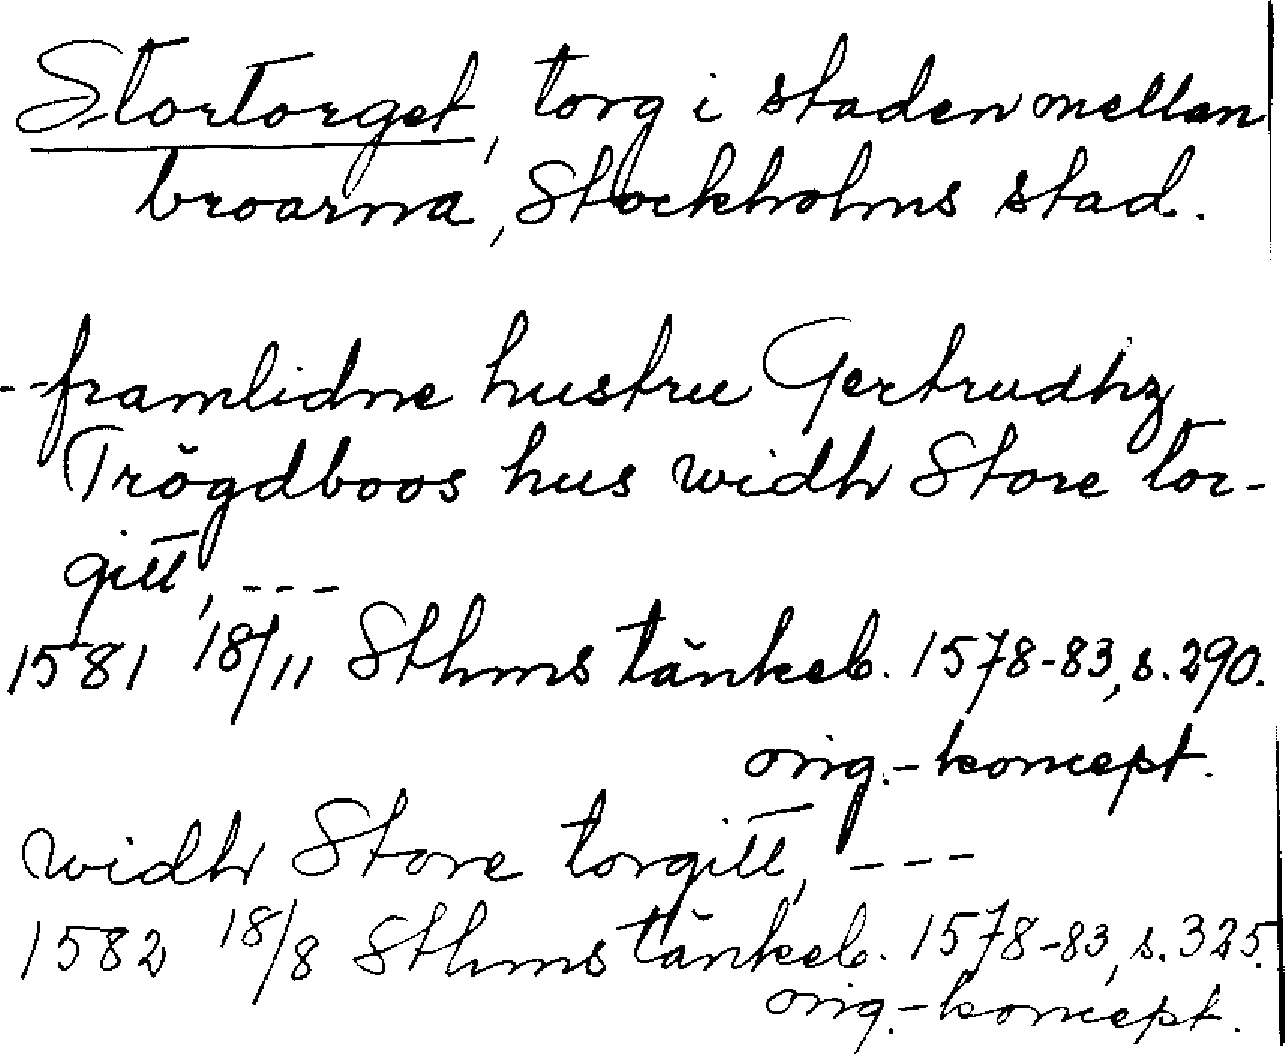 Stortorget, torg i staden mellan
broarna, Stockholms stad.
--framlidne hustru Gertrudhz
Trögdboos hus widh Store tor-
gitt, ---
1581 18/11 Sthms tänkeb. 1578-83, s. 290.
orig.-koncept.
widh Store torgitt, ---
1582 18/8 Sthms tänkeb. 1578-83, s. 325.
orig.-koncept.